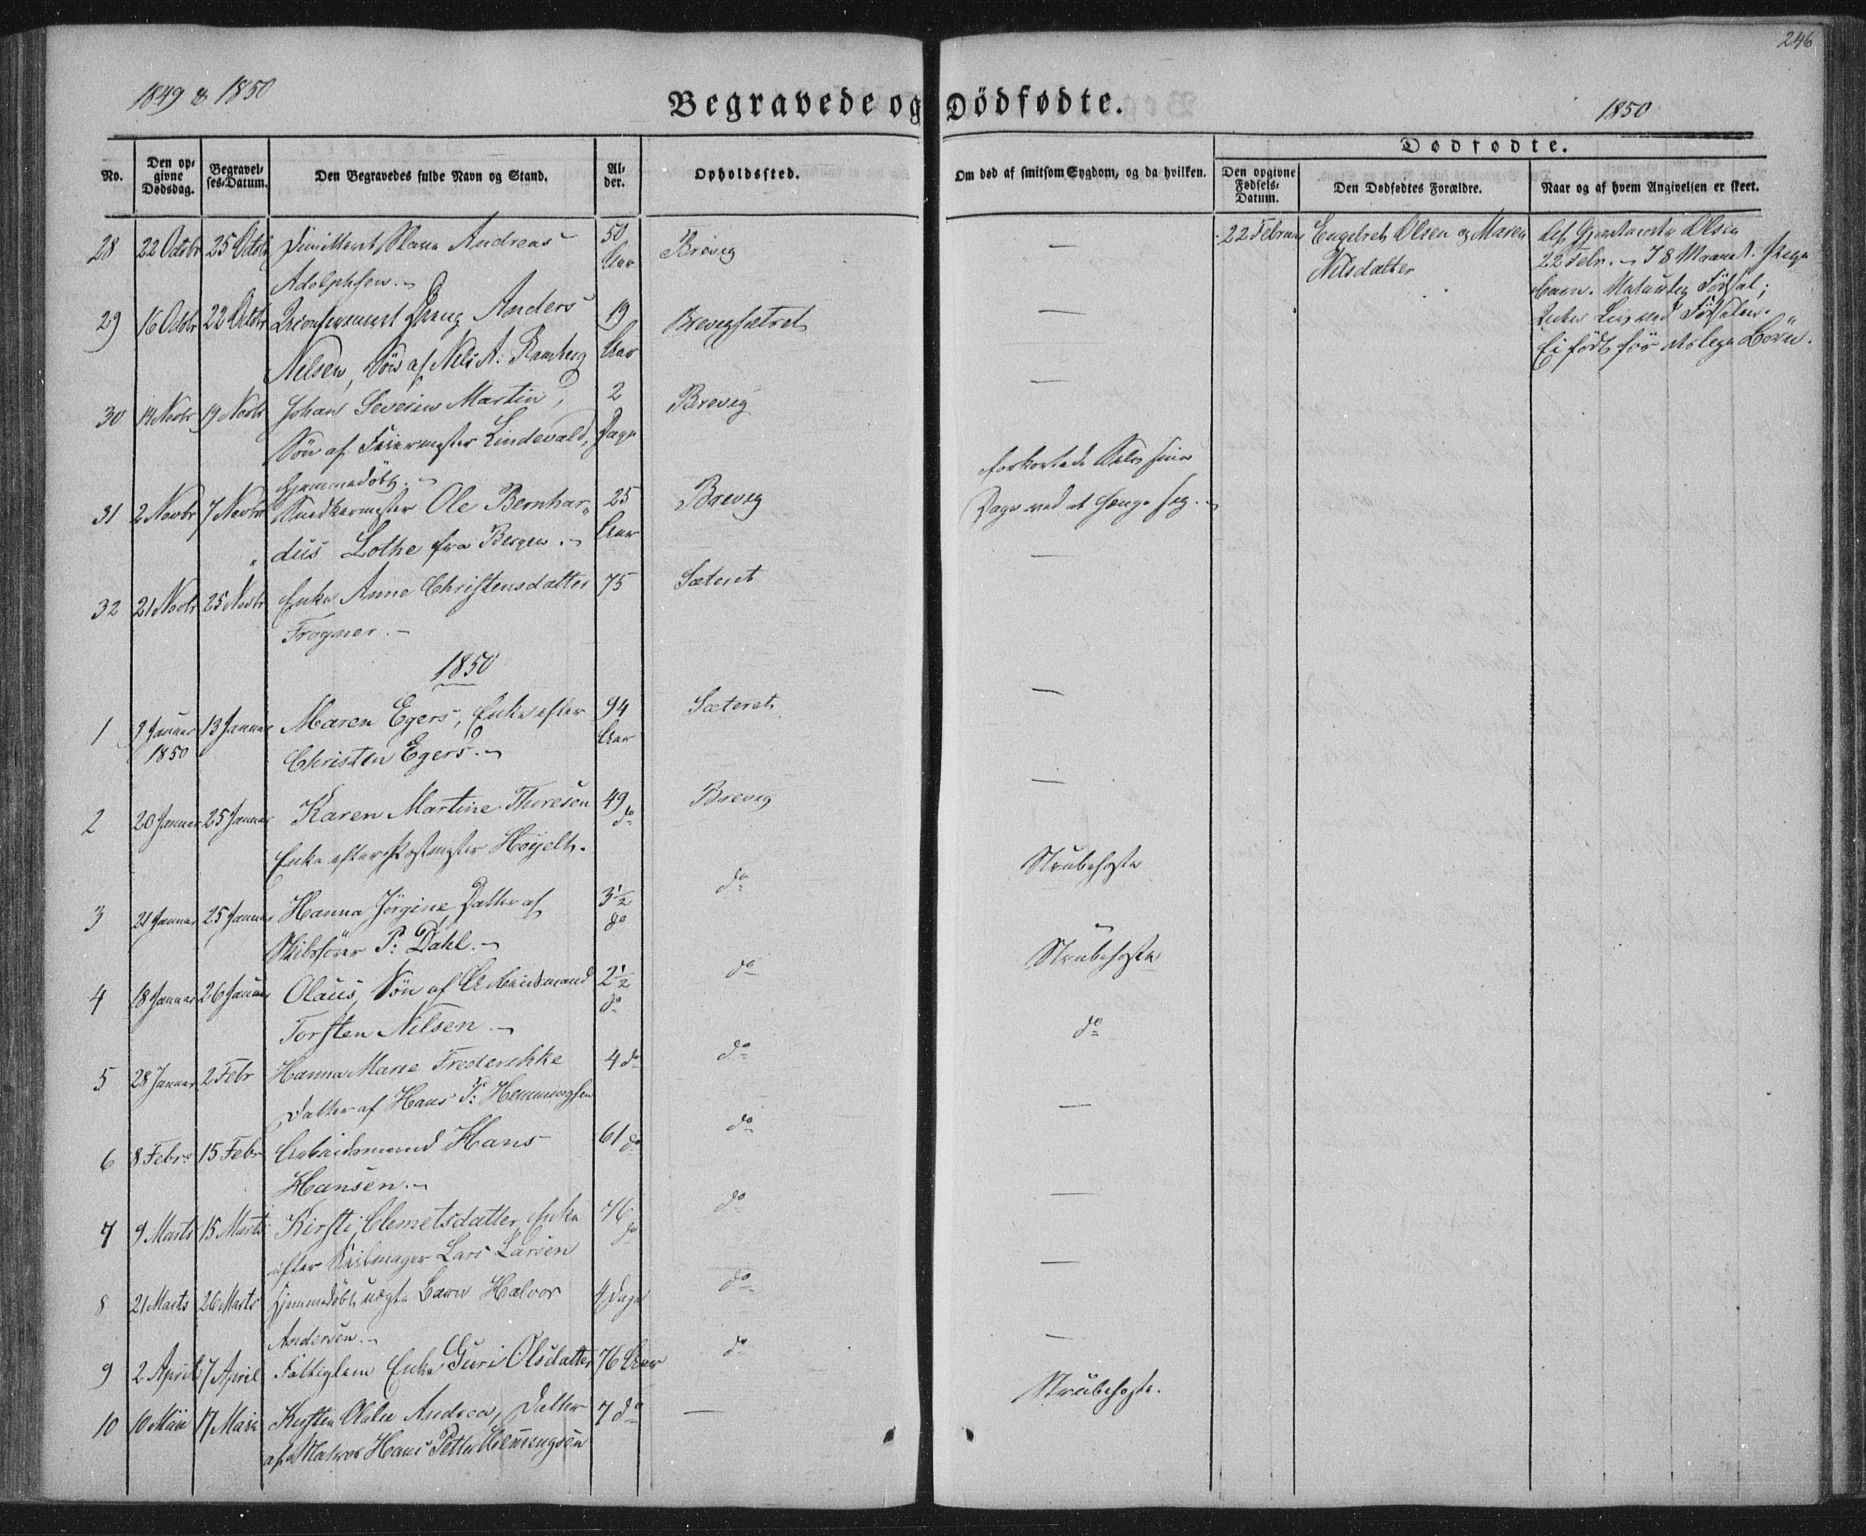 246
1849 & 1850
Begravede og Dödfødte.
1850
Dödfödte.
No.
Den op-
givne
Dødsdag.
Begravel-
ses-Datum.
Den Begravedes fulde Navn og Stand.
Al-
der.
Opholdssted.
Om død af smitsom Sygdom, og da hvilken.
Den opgivne
Fødsels-
Datum.
Den Dødfødtes Forældre.
Naar og af hvem Angivelsen er skeet.
28 22 Octbr 25 Octbr Andreas 50 Brevig — 22 Februar Engebret Olsen og Maren
Adolphsen. — Aar Nilsdatter
af Olsen
22 Febr. — I 8 Maaned.
Barn. Födsel;
ved Födselen.
Ei födt før
29 16 Octbr 22 Octbr Anders 19 Brevigsætret —
Nilsen, Søn af Nels A: Ramberg Aar
30 14 Novbr 19 Novbr Johan Severin Martin, 2 Brevig —
Søn af Feiermester Lindevald, Dage
Hjemmedöbt. —
31 2 Novbr 7 Novbr Snedkermester Ole Bernhar- 25 Brevig forkortede selv sine
dus Lothe fra Bergen. — Aar Dage ved at hænge sig. —
32 21 Novbr 25 Novbr Enke Anne Christensdatter 75 Sæteret —
Frogner. —
1850
1 9 Januar 13 Januar Maren Egers, Enke efter 94 Sæteret —
1850 Christen Egers. — Aar
2 20 Januar 25 Januar Karen Martine Thoresen 49 do Brevig —
Enke efter Postmester Høyelh.
3 21 Januar 25 Januar Hanna Jörgine, Datter af 3½ do do Strubehoste
Skibsfører P: Dahl. —
4 18 Januar 26 Januar Olaus, Søn af Arbeidsmand 2½ do do Strubehoste
Torsten Nilsen —
5 28 Januar 2 Febr Hanna Marie Frederikke 4 do do do
Datter af Hans P: Hemmingsen
6 8 Febr. 15 Febr Arbeidsmand Hans 61 do do —
Hansen. —
7 9 Marts 15 Marts Kirsti Clemetsdatter, Enke 76 do do —
efter Seilmager Lars Larsen
8 21 Marts 26 Marts Hjemmedöbt uægte Barn Halvor 4 Dage do —
Andersen. —
9 2 April 7 April Fattiglem Enke Guri Olsdatter 76 Aar do —
10 10 Mai 17 Mai Kirsten Andrea, Datter 7 do — Strubehoste.
af Matros Hans Petter Hemingsen